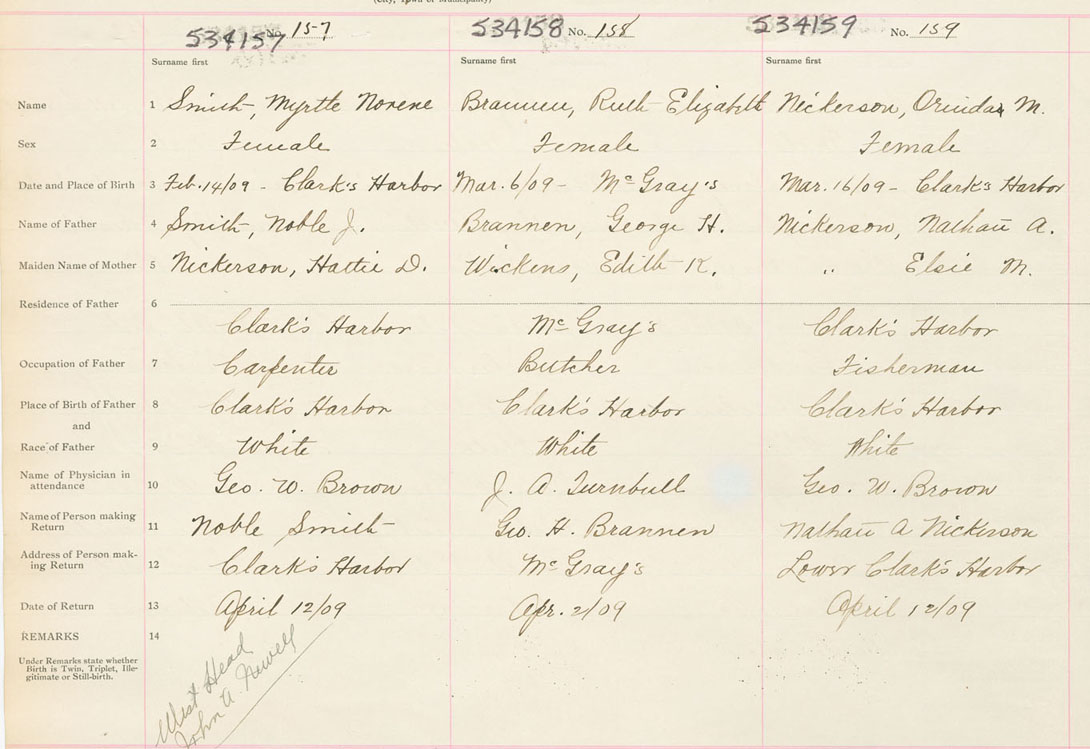 (City, Town or Municipality)
534157 No. 157 534158 No. 158 534159 No. 159
Surname first Surname first Surname first
Name 1 Smith, Myrtle Norene Brannen, Ruth Elizabeth Nickerson, Orinda M.
Sex 2 Female Female Female
Date and Place of Birth 3 Feb. 14/09 - Clark's Harbor Mar. 6/09 - McGray's Mar. 16/09 - Clark's Harbor
Name of Father 4 Smith, Noble J. Brannen, George H. Nickerson, Nathan A.
Maiden Name of Mother 5 Nickerson, Hattie D. Wickens, Edith K. " Elsie M.
Residence of Father 6
Clark's Harbor McGray's Clark's Harbor
Occupation of Father 7 Carpenter Butcher Fisherman
Place of Birth of Father 8 Clark's Harbor Clark's Harbor Clark's Harbor
and
Race of Father 9 White White White
Name of Physician in
attendance 10 Geo. W. Brown J. A. Turnbull Geo. W. Brown
Name of Person making
Return 11 Noble Smith Geo. H. Brannen Nathan A Nickerson
Address of Person mak-
ing Return 12 Clark's Harbor McGray's Lower Clark's Harbor
Date of Return 13 April 12/09 Apr. 2/09 April 12/09
REMARKS 14
Under Remarks state whether
Birth is Twin, Triplet, Ille-
gitimate or Still-birth.
West Head
John A Newell